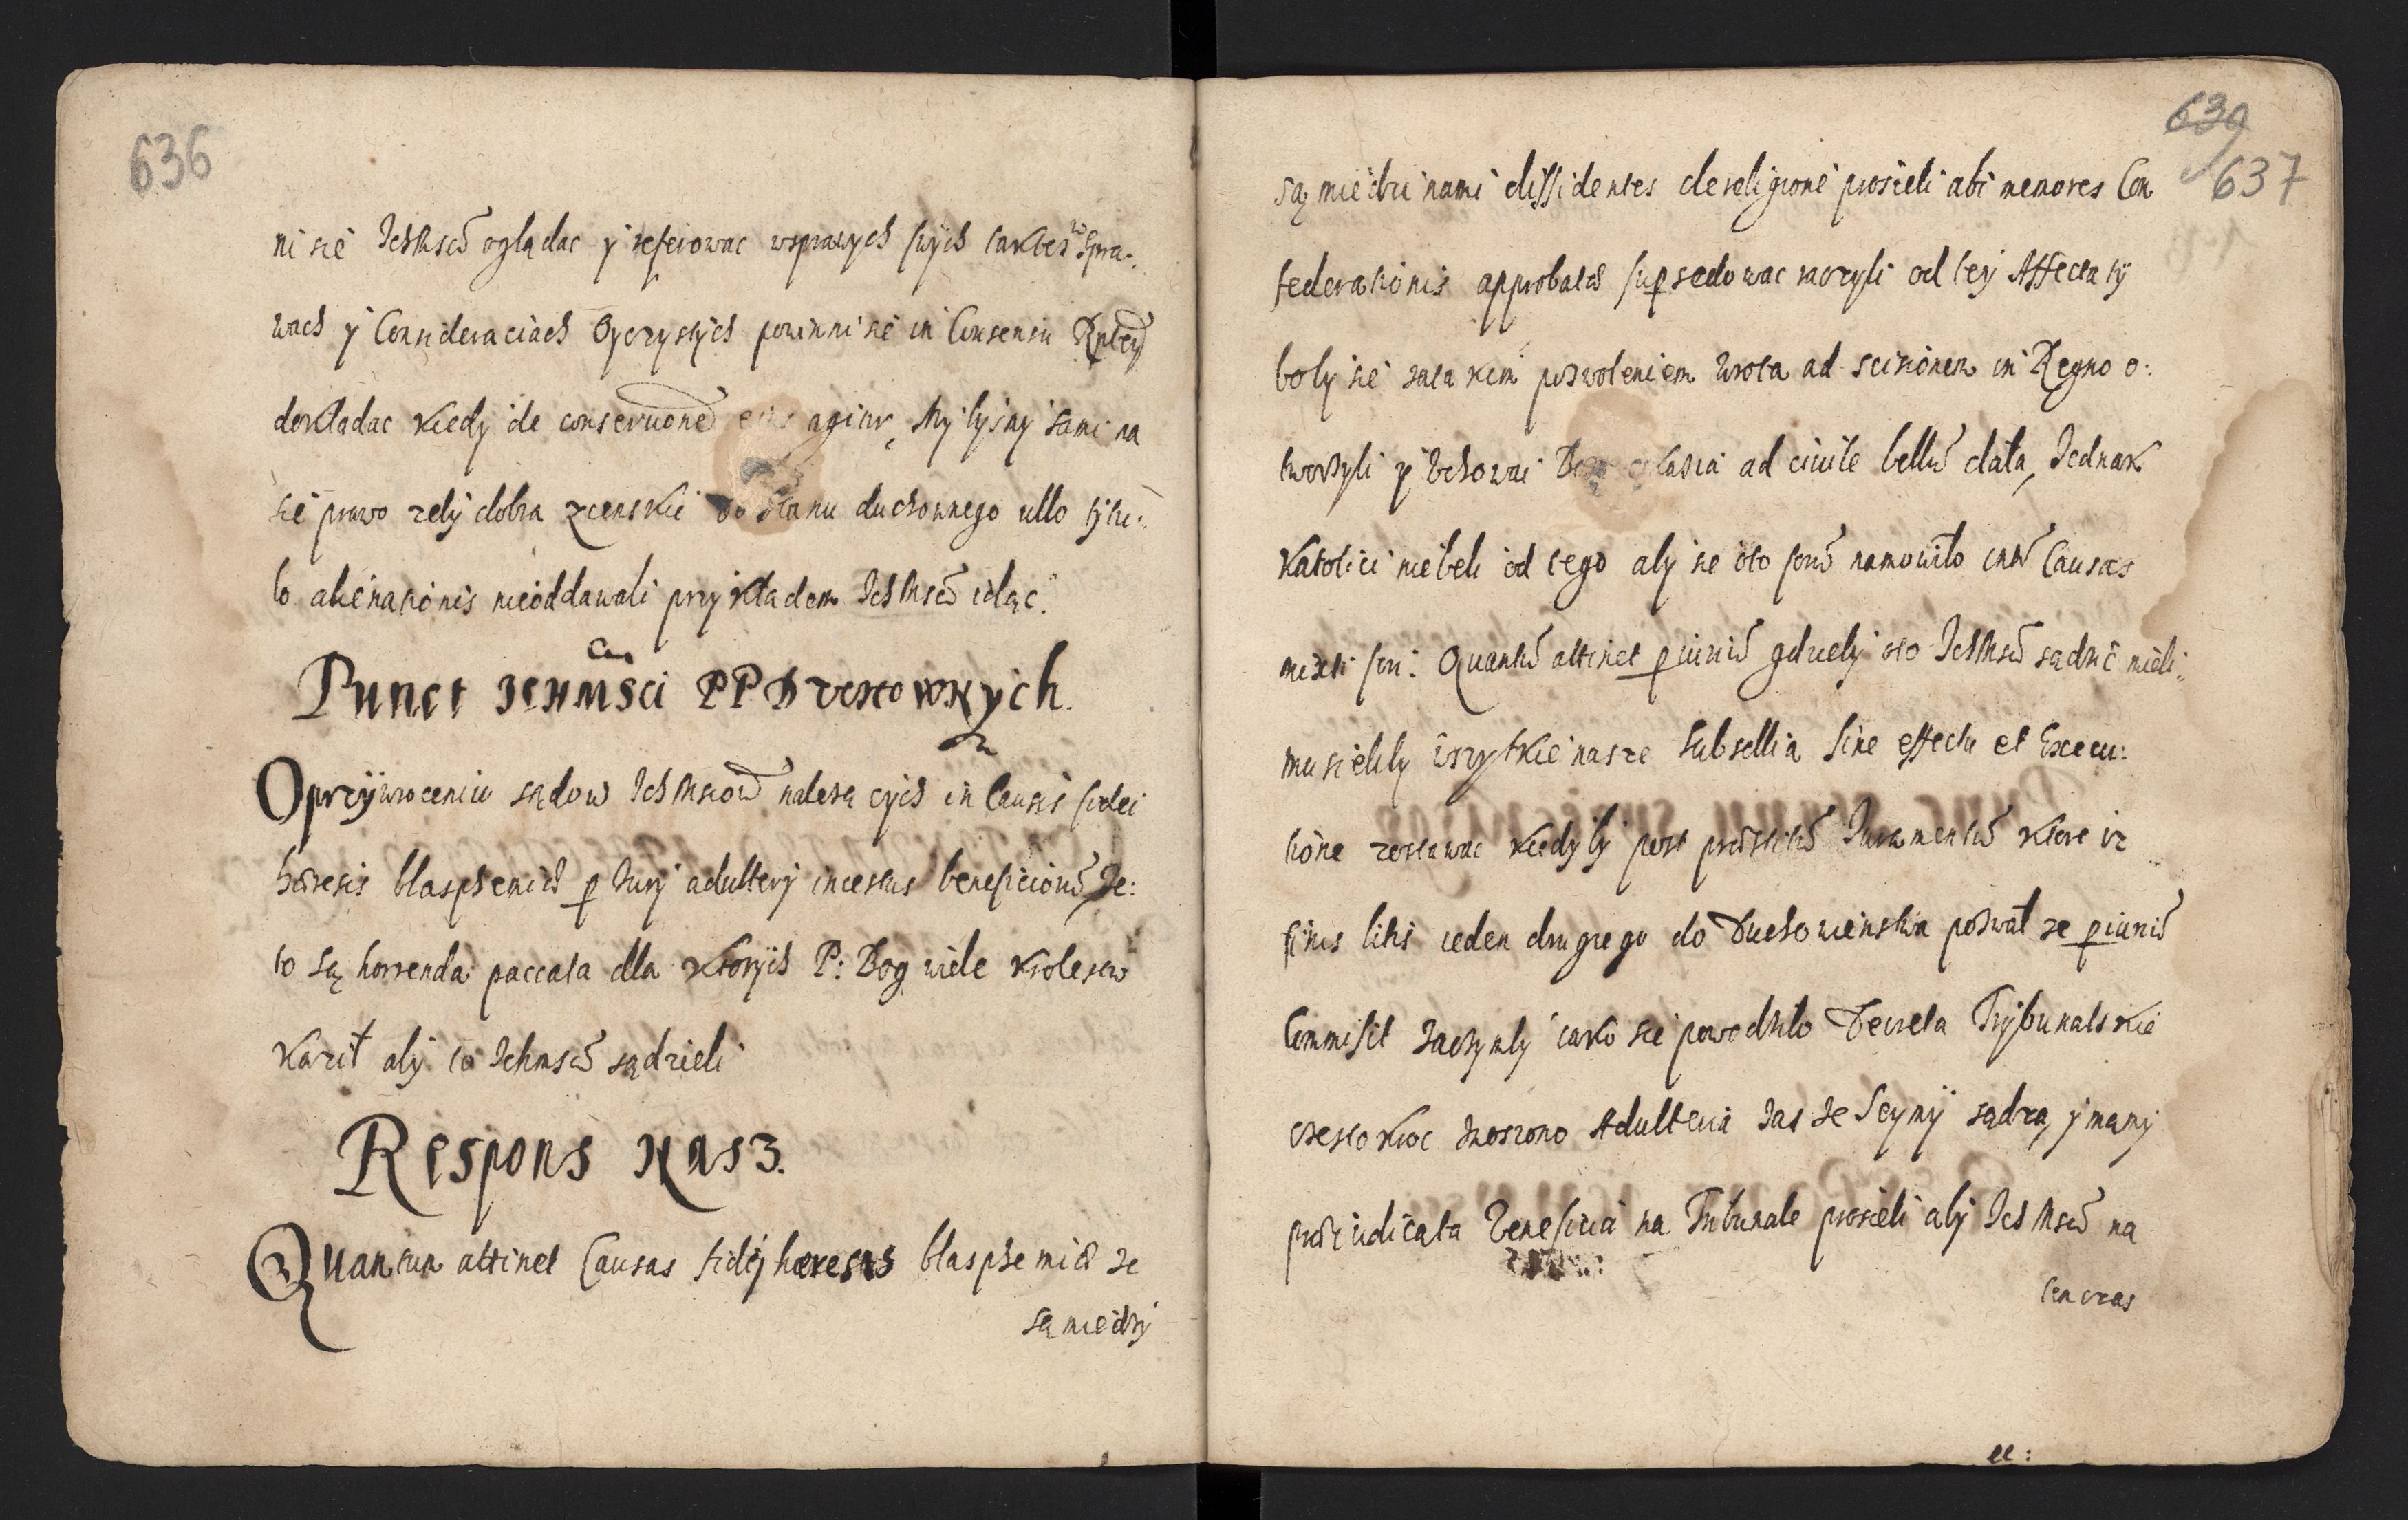 636
ni sie Ichmscw oglądac y referowac wsprawych swych także w Spra-
wach y Consideraciach Oyczystych powinni sie in Consensu Rptey
dokładac kiedy de conservone eius agitur, My bysmy sami na
sie prawo zeby dobra zienskie do stanu duchownego ullo tytu-
lo alienationis nieoddawali przykładem Ichmscw idąc.
Punct Ichmsci PP Duchownych.
O przywroceniu sądow Ichmsciow należących in Causis fidei
hæresis blasphemiæ perJurij adulterij incestus beneficioru Je:
to są horrenda paccata dla ktorych P: Bog wiele krolestw
karał aby to Ichmscw sądzieli
Respons Nasz.
Quantun attinet Causas fidej hæresis blasphemiæ ze
są miedzy
639
637
są miedzi nami dissidentes de religione prosieli abi memores Con
federationis approbatæ supersedowac raczyli od tey Affectaty
boby sie za takim pozwoleniem wrota ad scisionem in Regno o:
tworzyli y Uchowai Boze okasia ad civile bellu data, Jednak
Katolici niebeli od tego aby sie oto foru namowilo int Causas
mixti fori. Quantu attinet periuriu gdzieby oto Ichmscw sądzic mieli
musieliby wszytkie nasze Subsellia sine effectu et Execu:
tione zostawac kiedyby post præstitu Juramentu ktore iz
finis litis ieden drugiego do Duchowienstwa pozwał ze periuriu
Commisit zaczymby iako sie powodziło Decreta Trybunalskie
czestokroc znoszono Adulteria zas ze Seymy sądzą y mamy
præiudicata Veneficia na Tribunale prosieli aby Ichmscw na
ten czas